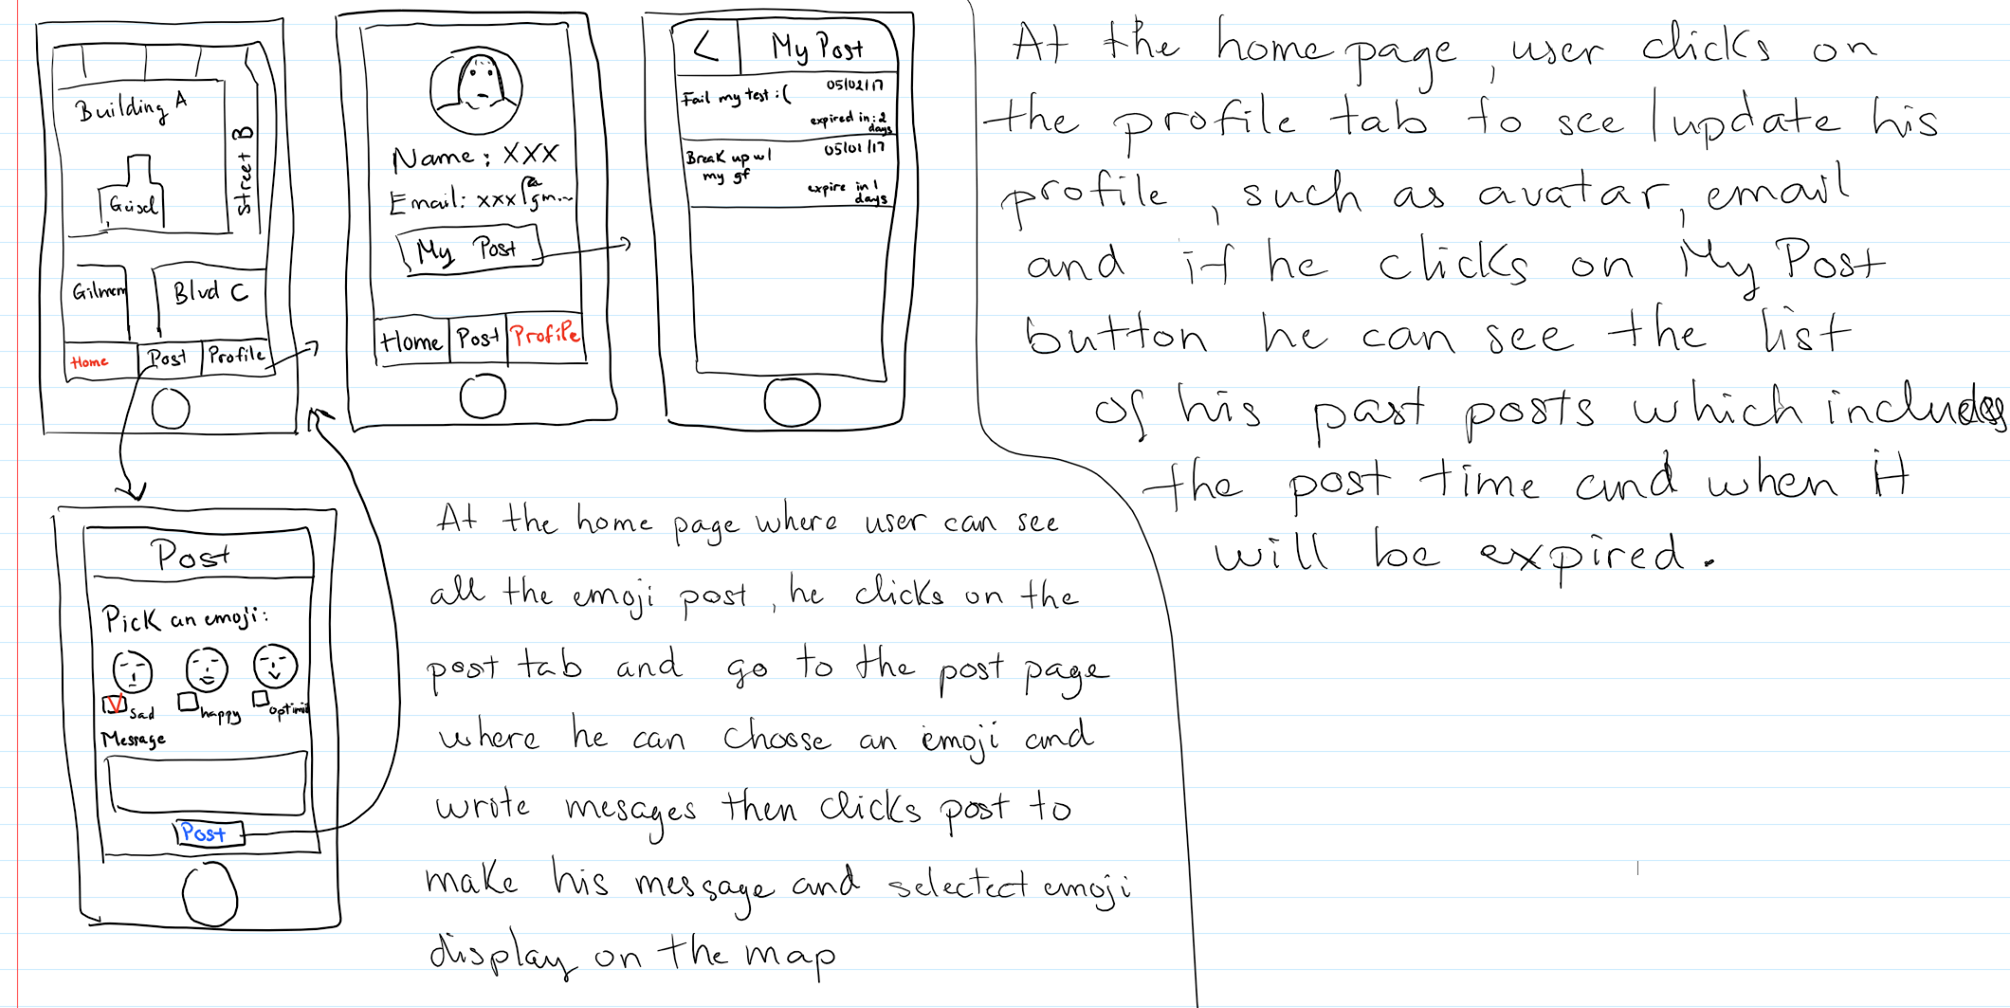 Building A
Street B
Geisel
Gilmem
Blvd C
Home
Post
Profile
Name: XXX
Email: xxx@gm...
My Post
Home
Post
Profile
<
My Post
Fail my test :(
05/02/17
expired in: 2
days
Break up w/
my gf
05/01/17
expire in 1
days
At the home page, user clicks on
the profile tab to see / update his
profile, such as avatar, email
and if he clicks on My Post
button he can see the list
of his past posts which includes
the post time and when it
will be expired.
Post
Pick an emoji:
sad
happy
optimi
Message
Post
At the home page where user can see
all the emoji post, he clicks on the
post tab and go to the post page
where he can choose an emoji and
wrote mesages then clicks post to
make his message and selectect emoji
display on the map